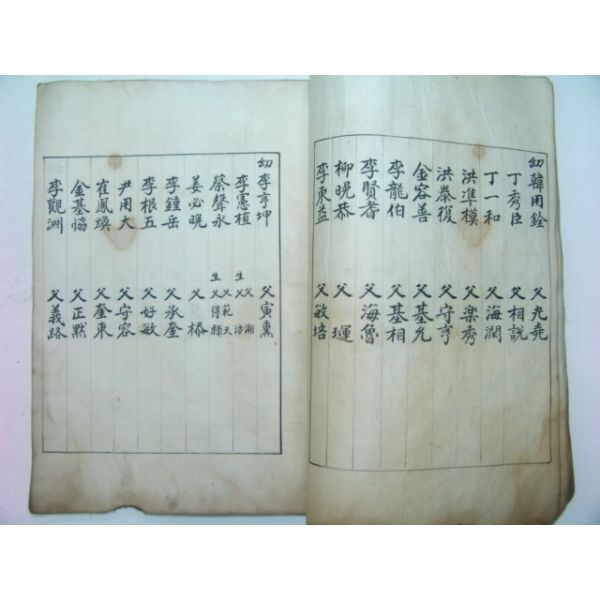 幼 韓用銓 父光堯
丁秀臣 父相說
丁一和 父海潤
洪準模 父樂秀
洪泰復 父守亨
金容善 父基允
李龍伯 父基相
李賢耆 父海魯
柳晩恭 父㻶
李東益 父敏培
幼 李亨坤 父寅熏
李憲植 父湖 生父坊
蔡聲永 父範天 生父得
姜必晩 父椿
李鍾岳 父承奎
李根五 父好敏
尹用大 父守容
崔鳳煥 父奎東
金基恊 父正默
李觀淵 父義路